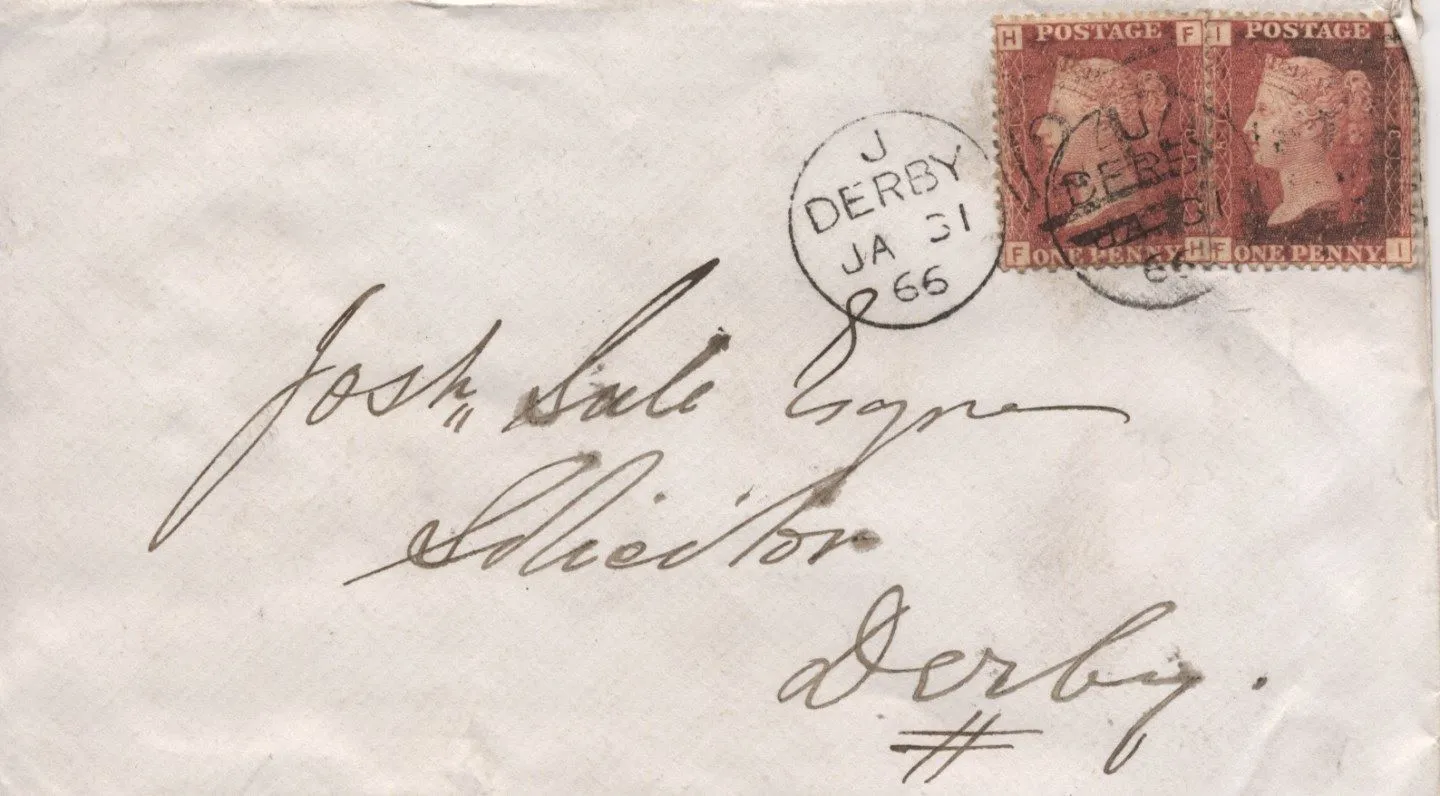 H POSTAGE F I POSTAGE
F ONE PENNY H F ONE PENNY I
J
DERBY
JA 31
66
DERBY
JA 31
66
Josh,, Sale Esqre
Solicitor
Derby.